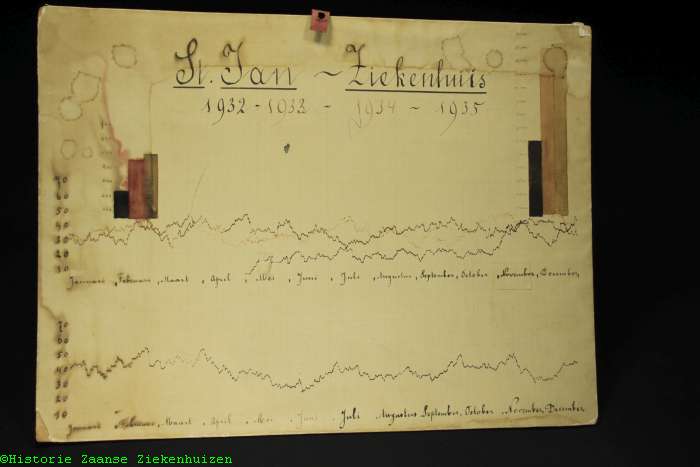 St. Jan ~ Ziekenhuis
1932 - 1933 - 1934 - 1935
70
60
50
40
30
20
10
Januari, Februari, Maart, April, Mei, Juni, Juli, Augustus, September, October, November, December,
70
60
50
40
30
20
10
Januari, Februari, Maart, April, Mei, Juni, Juli, Augustus, September, October, November, December,
©Historie Zaanse Ziekenhuizen